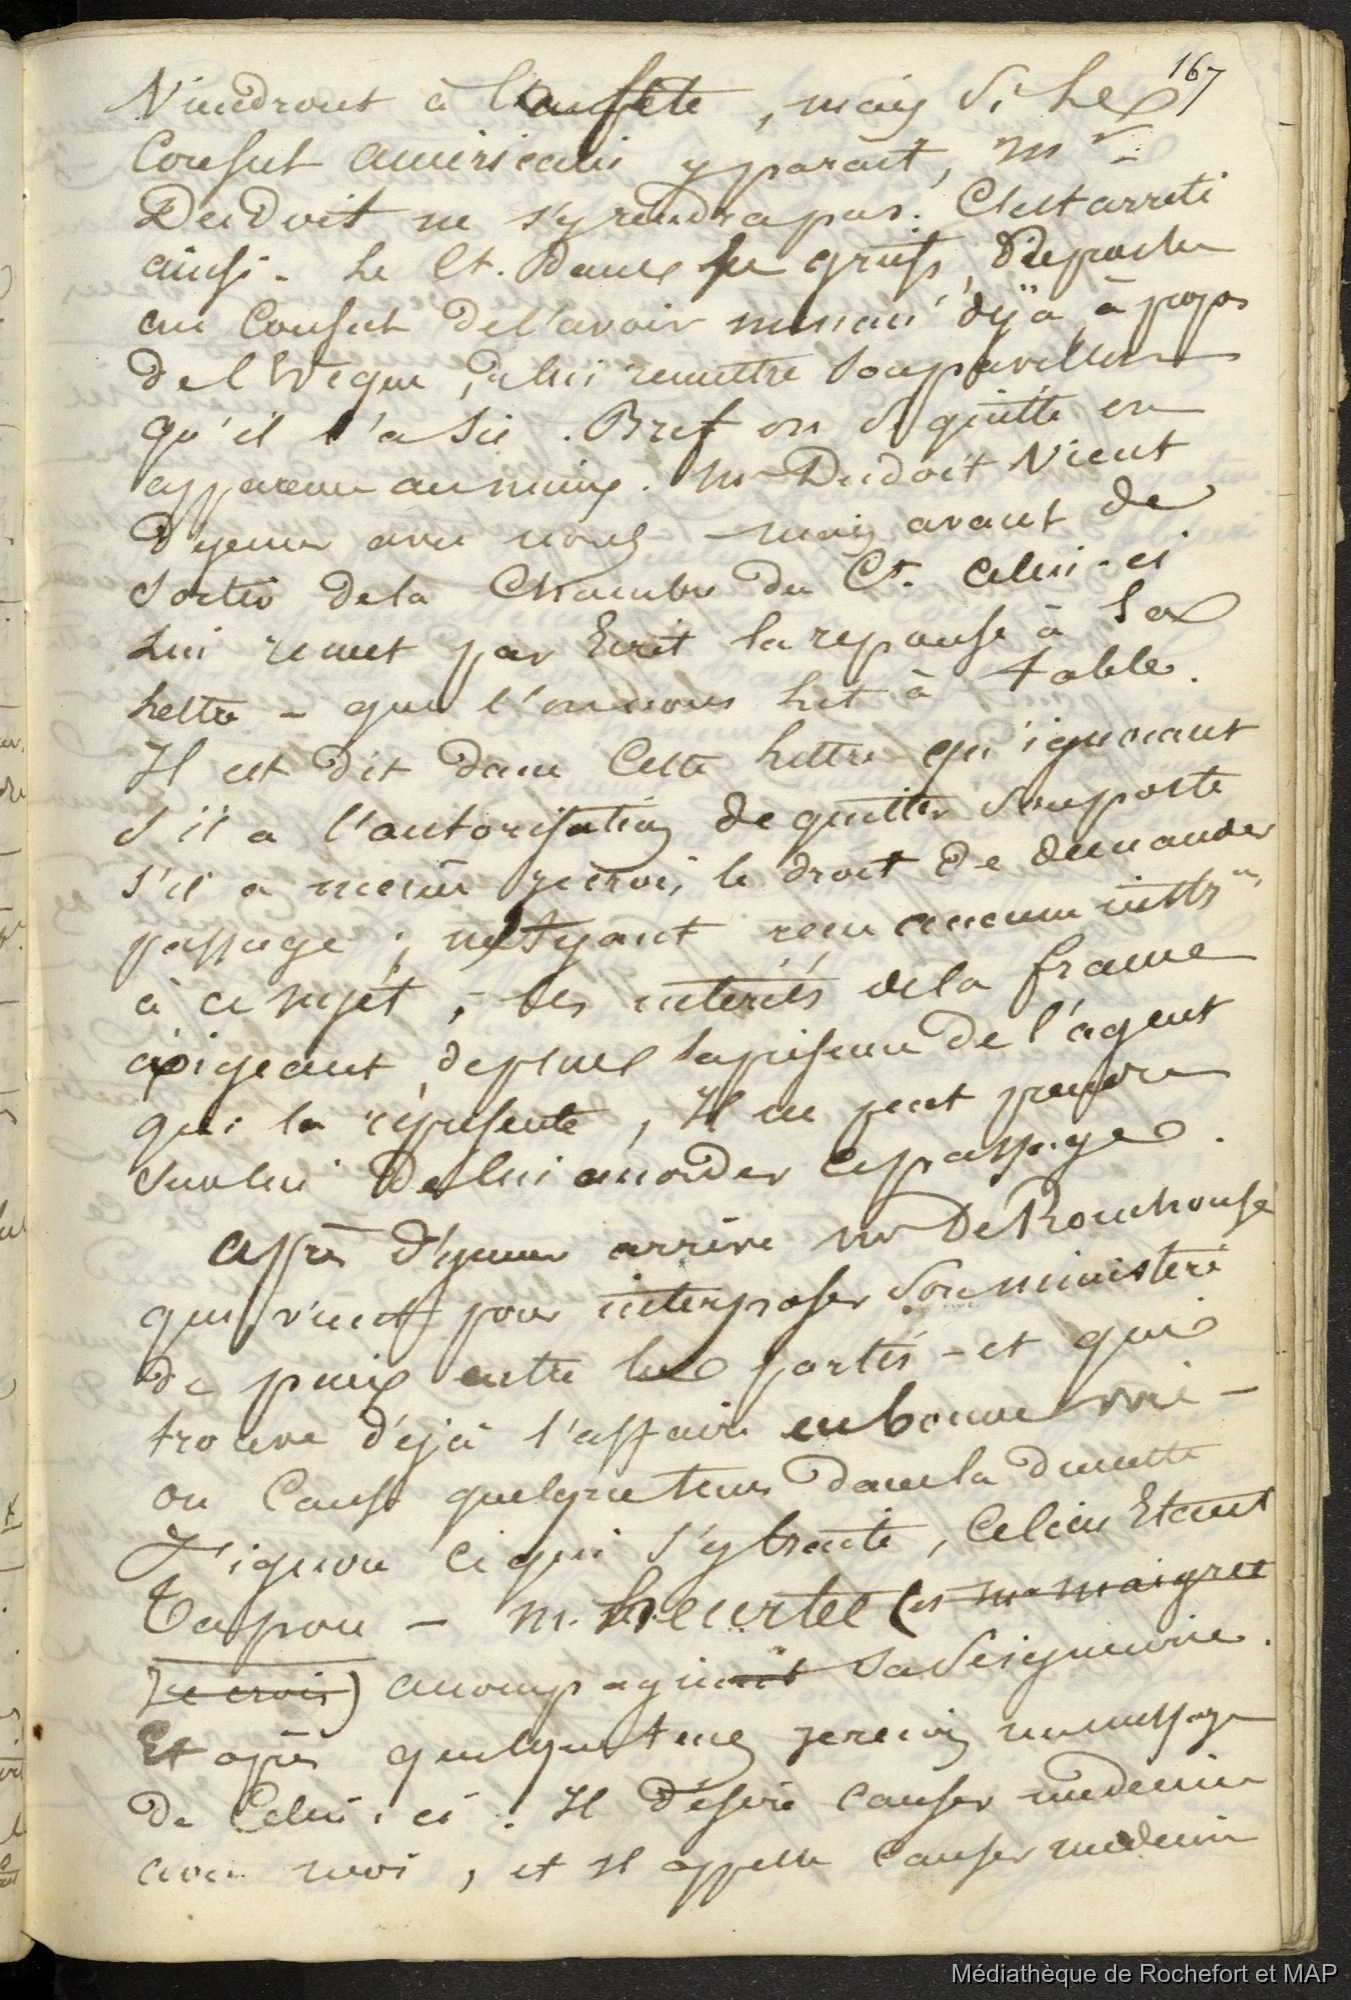 167
Viendront à l'enquête, mais si le
Consul américain y parait, Mr
Dudoit ne s'y rendra pas. C'est arrêté
ainsi. Le Ct. dans le
au Consul de l'avoir menacé déjà, à propos
de l'evêque, de lui remettre son pavillon
qu'il l'a su. Bref on se quitte en
apparence au mieux. Mr Dudoit vient
déjeuner avec nous - mais avant de
sortir de la Chambre du Ct. celui-ci
lui remet par Ecrit la reponse à sa
lettre - que l'on nous lit à table.
Il est dit dans cette lettre qu'ignorant
s'il a l'autorisation de quitter son poste
s'il a même, je crois, le droit de demander
passage ; n'ayant reçu aucune instron
à ce sujet, - les interêts de la france
exigeant, de plus la présence de l'agent
qui la représente, Il ne peut prendre
sur lui de lui accorder ce passage.
après déjeuner arrive mr De Rouchouse
qui vient pour interposer son ministère
de paix entre les partis - et qui
trouve déjà l'affaire en bonne voie -
on cause quelque tems dans la dunette
J'ignore ce qui s'y traite, celui-ci Etant
Tapou - m. heurtel (et mr maigret
je crois) accompagnait sa Seigneurie.
Et après quelque tems je reçois un message
de Celui-ci. Il désire causer médecine
avec moi, et il appelle causer médecine
Médiathèque de Rochefort et MAP